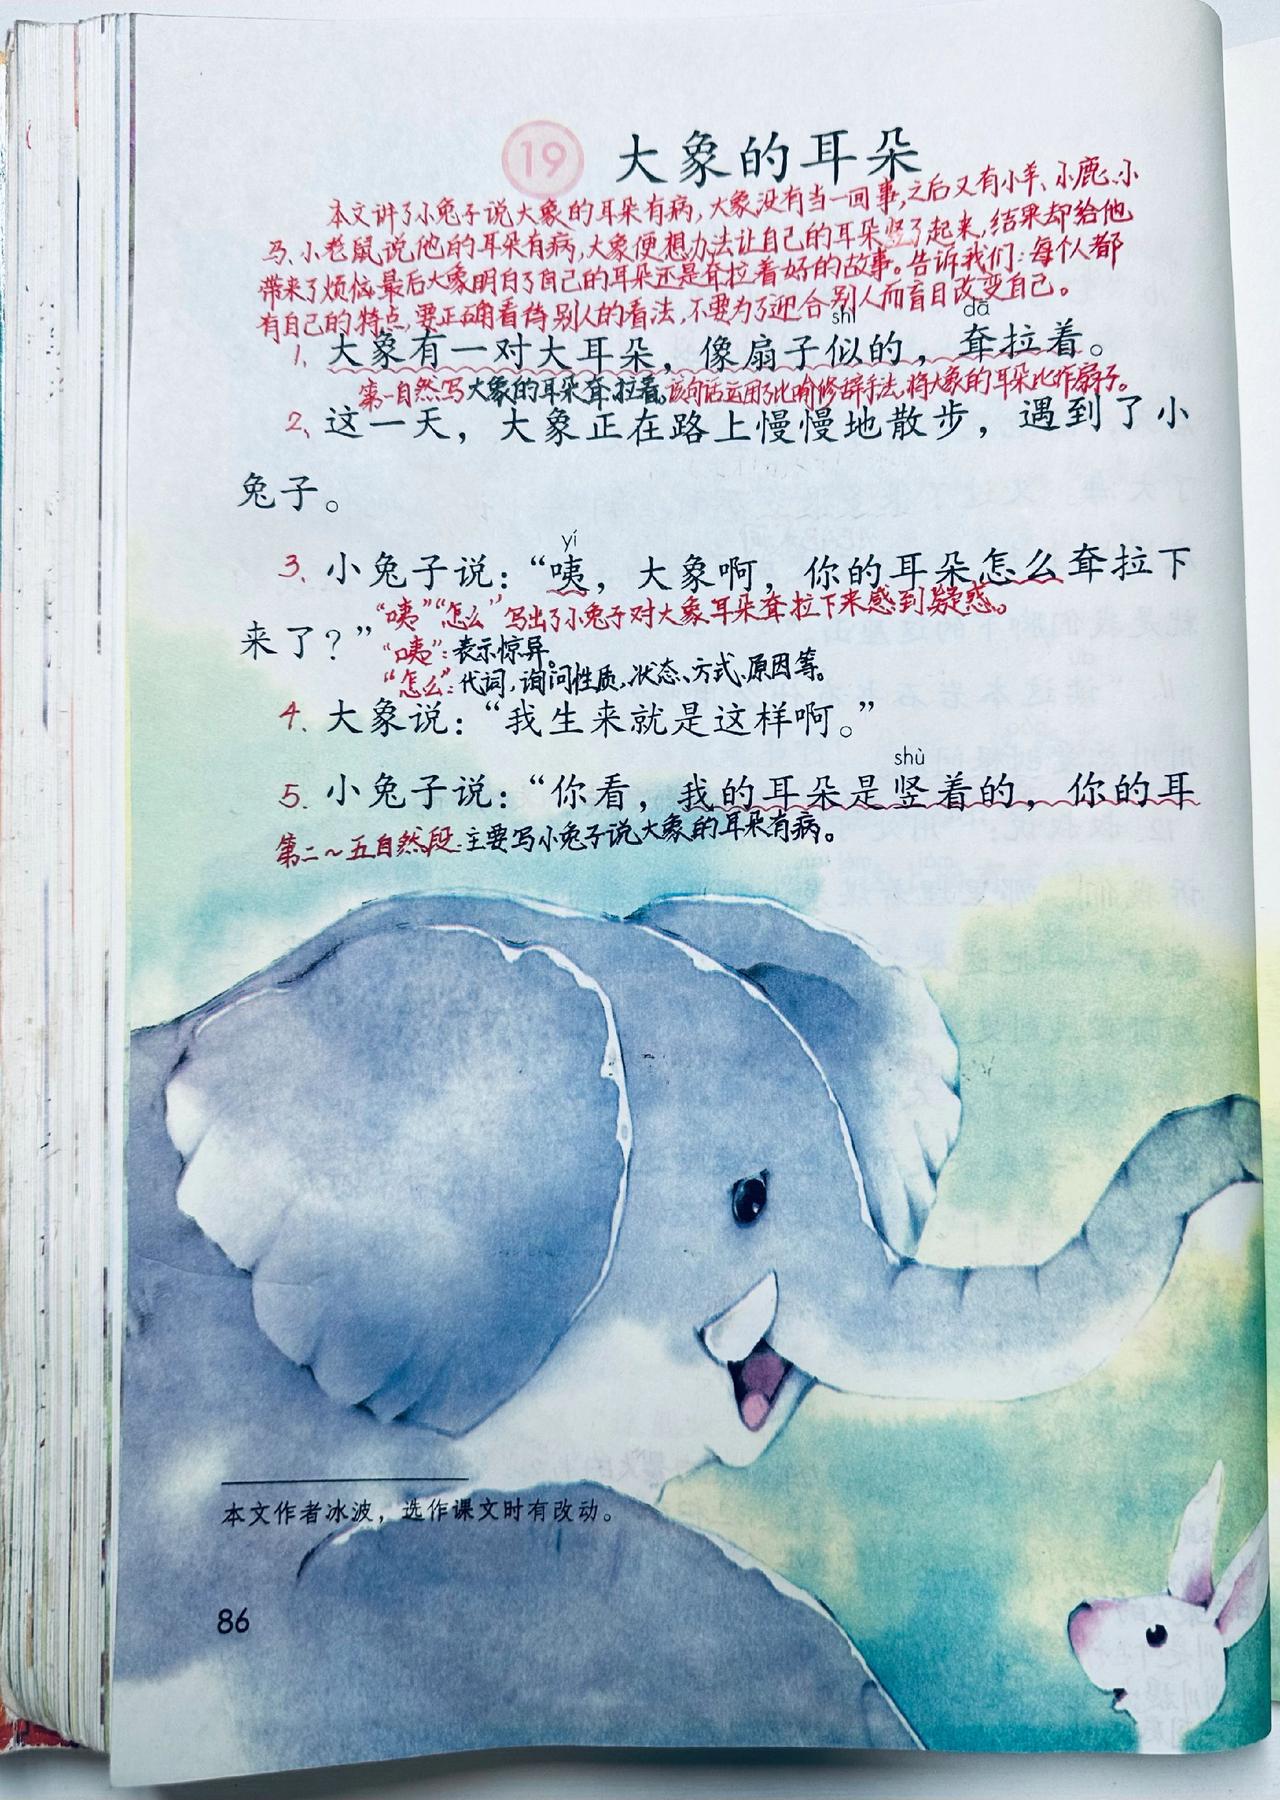 19 大象的耳朵
本文讲了小兔子说大象的耳朵有病,大象没有当一回事,之后又有小羊、小鹿、小
马、小老鼠说他的耳朵有病,大象便想办法让自己的耳朵竖了起来,结果却给他
带来了烦恼,最后大象明白了自己的耳朵还是耷拉着好的故事。告诉我们:每个人都
有自己的特点,要正确看待别人的看法,不要为了迎合别人而盲目改变自己。
shì dā
1、大象有一对大耳朵，像扇子似的，耷拉着。
第一自然写大象的耳朵耷拉着。该句话运用了比喻修辞手法,将大象的耳朵比作扇子。
2、这一天，大象正在路上慢慢地散步，遇到了小
兔子。
yí
3、小兔子说：“咦，大象啊，你的耳朵怎么耷拉下
“咦”“怎么”写出了小兔子对大象耳朵耷拉下来感到疑惑。
来了？”
“咦”:表示惊异。
“怎么”:代词,询问性质、状态、方式、原因等。
4、大象说：“我生来就是这样啊。”
shù
5、小兔子说：“你看，我的耳朵是竖着的，你的耳
第二~五自然段.主要写小兔子说大象的耳朵有病。
本文作者冰波，选作课文时有改动。
86